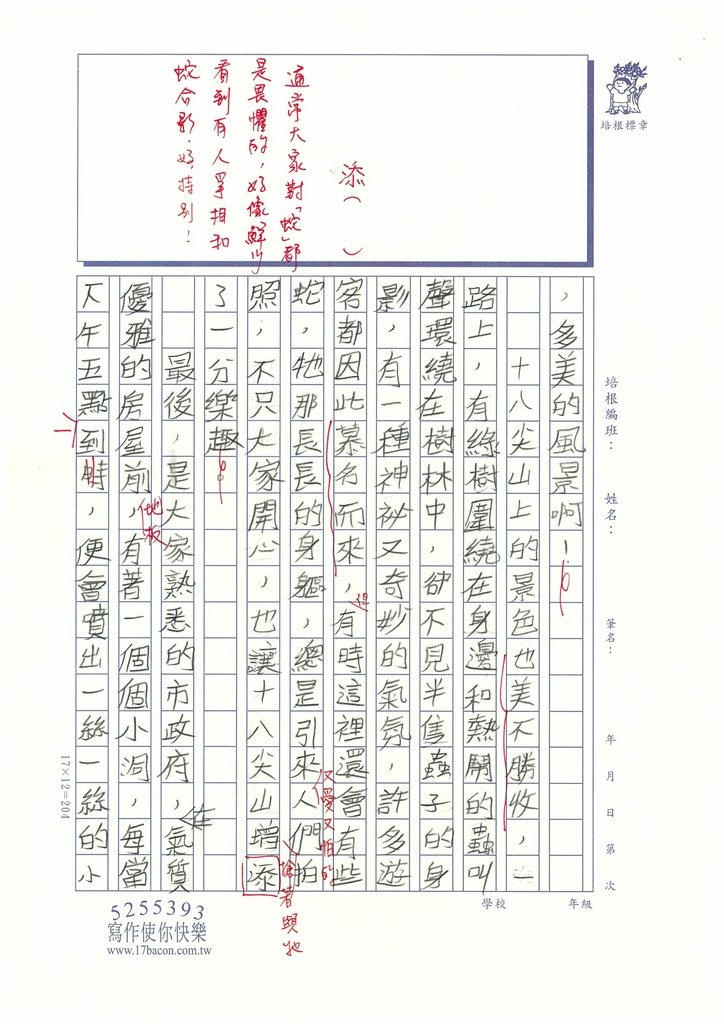 添（ ）
通常大家對「蛇」都
是畏懼的，好像鮮少
看到有人爭相和
蛇合影，好特別！
培根標章
培根編班：
姓名：
筆名：
年 月 日 第 次
，多美的風景啊！
十八尖山上的景色也美不勝收，一
路上，有綠樹圍繞在身邊和熱鬧的蟲叫
聲環繞在樹林中，卻不見半隻蟲子的身
影，有一種神祕又奇妙的氣氛，許多遊
客都因此慕名而來，有時這裡還會有些
蛇，牠那長長的身軀，總是引來人們拍
照，不只大家開心，也讓十八尖山增添
了一分樂趣。
最後，是大家熟悉的市政府，氣質
優雅的房屋前，有著一個個小洞，每當
下午五點到時，便會噴出一絲一絲的小
在
地板
又愛又怕的
搶著與牠
17×12=204
學校
年級
5255393
寫作使你快樂
www.17bacon.com.tw